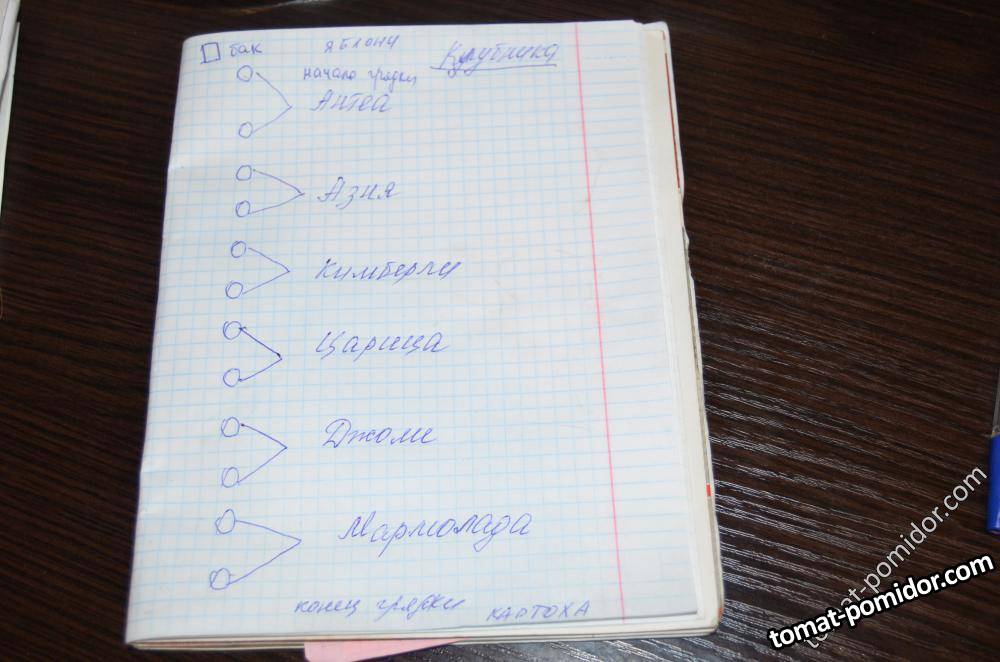 бак яблони Клубника
начало грядки
Антеа
Азия
Кимберли
Царица
Джоли
Мармолада
конец грядки КАРТОХА
tomat-pomidor.com
tomat-pomidor.com